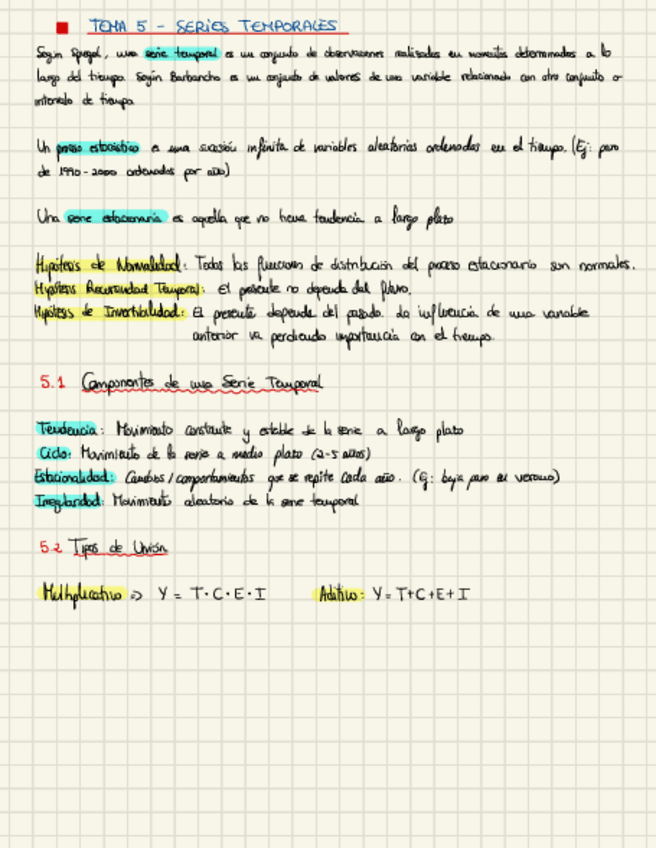 TEMA 5 - SERIES TEMPORALES
Según Spiegel, una serie temporal es un conjunto de observaciones realizadas en momentos determinados a lo
largo del tiempo. Según Barbancho es un conjunto de valores de una variable relacionado con otro conjunto o
intervalo de tiempo
Un proceso estocástico es una sucesión infinita de variables aleatorias ordenadas en el tiempo. (Ej: paro
de 1990-2000 ordenados por año)
Una serie estacionaria es aquella que no tiene tendencia a largo plazo
Hipótesis de Normalidad: Todas las funciones de distribución del proceso estacionario son normales.
Hipótesis Recursividad Temporal: El presente no depende del futuro.
Hipótesis de Invertibilidad: El presente depende del pasado. La influencia de una variable
anterior va perdiendo importancia con el tiempo.
5.1 Componentes de una Serie Temporal
Tendencia: Movimiento constante y estable de la serie a largo plazo
Ciclo: Movimiento de la serie a medio plazo (2-5 años)
Estacionalidad: Cambios/comportamientos que se repite cada año. (Ej: baja paro en verano)
Irregularidad: Movimiento aleatorio de la serie temporal
5.2 Tipos de Unión
Multiplicativo => Y = T·C·E·I Aditivo: Y = T+C+E+I